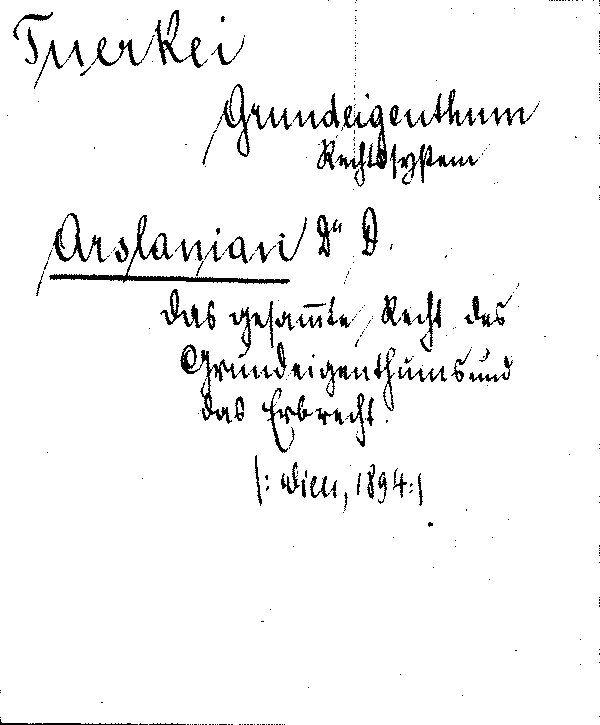 Tuerkei
Grundeigenthum
Rechtssystem
Arslanian Dr D.
Das gesam̅te Recht des
Grundeigenthums und
das Erbrecht.
|: Wien, 1894 :|